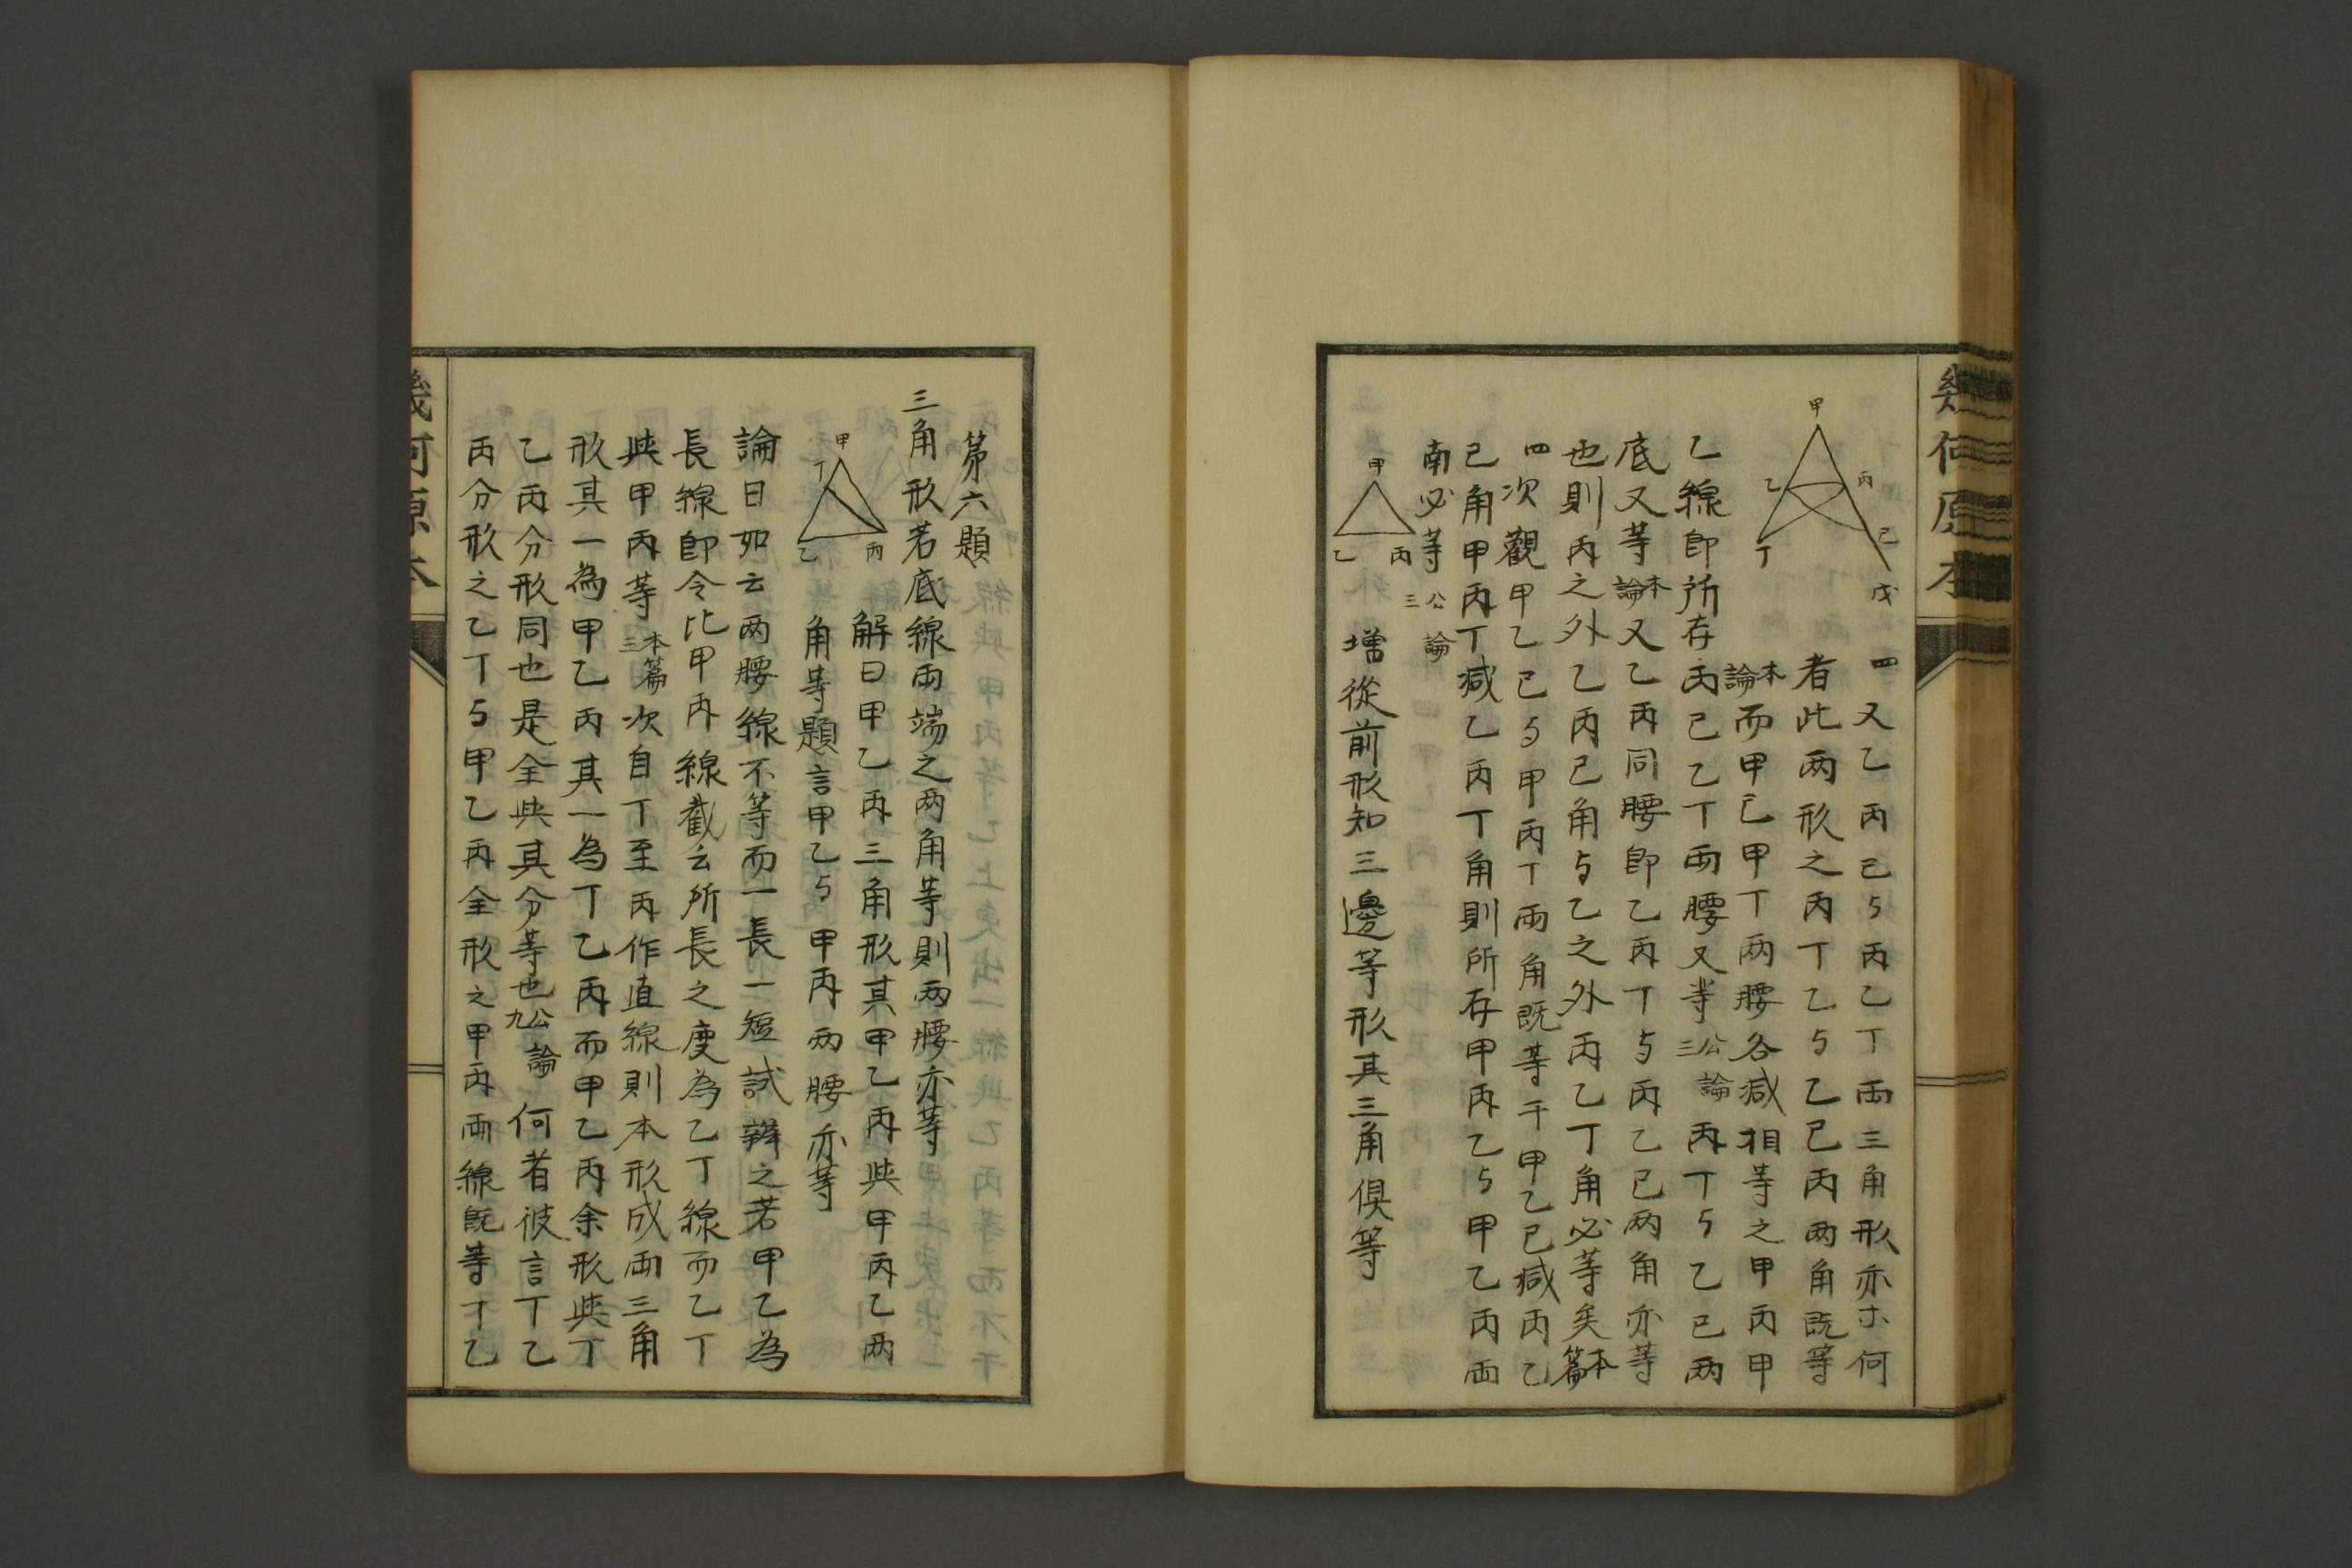 幾何原本
甲
乙
丙
丁
己
戊
四又乙丙己与丙乙丁兩三角形亦木何
者此两形之丙丁乙与乙己丙两角既等
本論而甲己甲丁两腰各减相等之甲丙甲
乙線即所存丙己乙丁兩腰又等公論三丙丁与乙己两
底又等本論又乙丙同腰即乙丙丁与丙乙己两角亦等
也則丙之外乙丙己角与乙之外丙乙丁角必等矣本篇
四次觀甲乙己与甲丙丁兩角既等于甲乙己减丙乙
己角甲丙丁减乙丙丁角則所存甲丙乙与甲乙丙兩
南必等公論三
甲
乙
丙
增從前形知三邊等形其三角俱等
第六題
三角形若底線兩端之两角等則两腰亦等
甲
丁
乙
丙
解曰甲乙丙三角形其甲乙丙與甲丙乙两
角等題言甲乙与甲丙兩腰亦等
論曰如云两腰線不等而一長一短試辯之若甲乙為
長線即令比甲丙線截去所長之度為乙丁線而乙丁
與甲丙等本篇三次自丁至丙作直線則本形成兩三角
形其一為甲乙丙其一為丁乙丙而甲乙丙余形與丁
乙丙分形同也是全與其分等也公論九何者彼言丁乙
丙分形之乙丁与甲乙丙全形之甲丙兩線既等丁乙
幾何原本